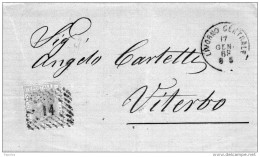 Sig.
Angelo Cartetti
Viterbo
LIVORNO CENTRALE
17
GEN.
68
8 S
14